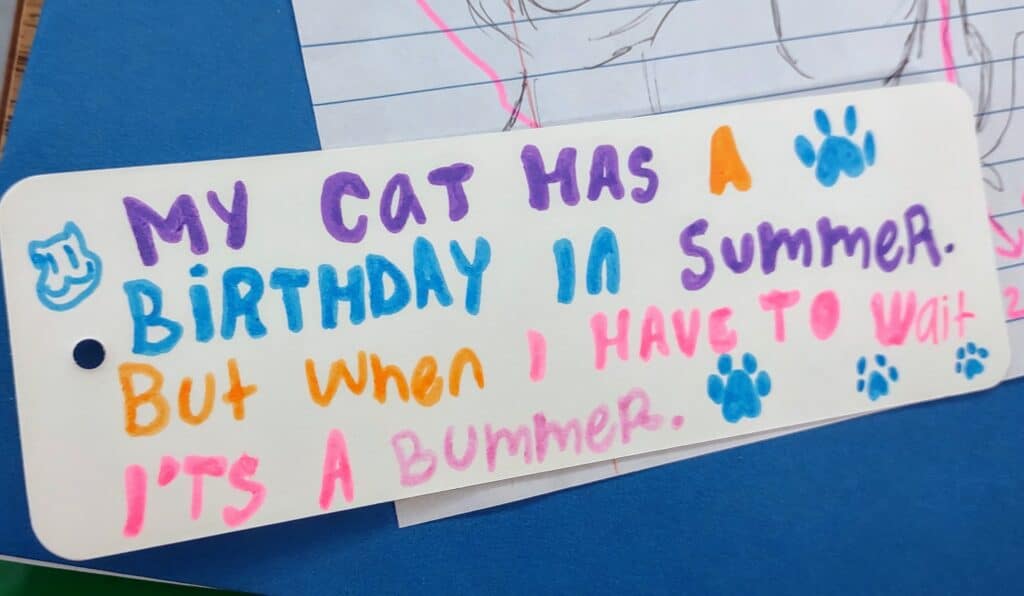 MY CAT HAS A
BIRTHDAY IN SUMMER.
BUT WHEN I HAVE TO WAIT
I'TS A BUMMER.
2